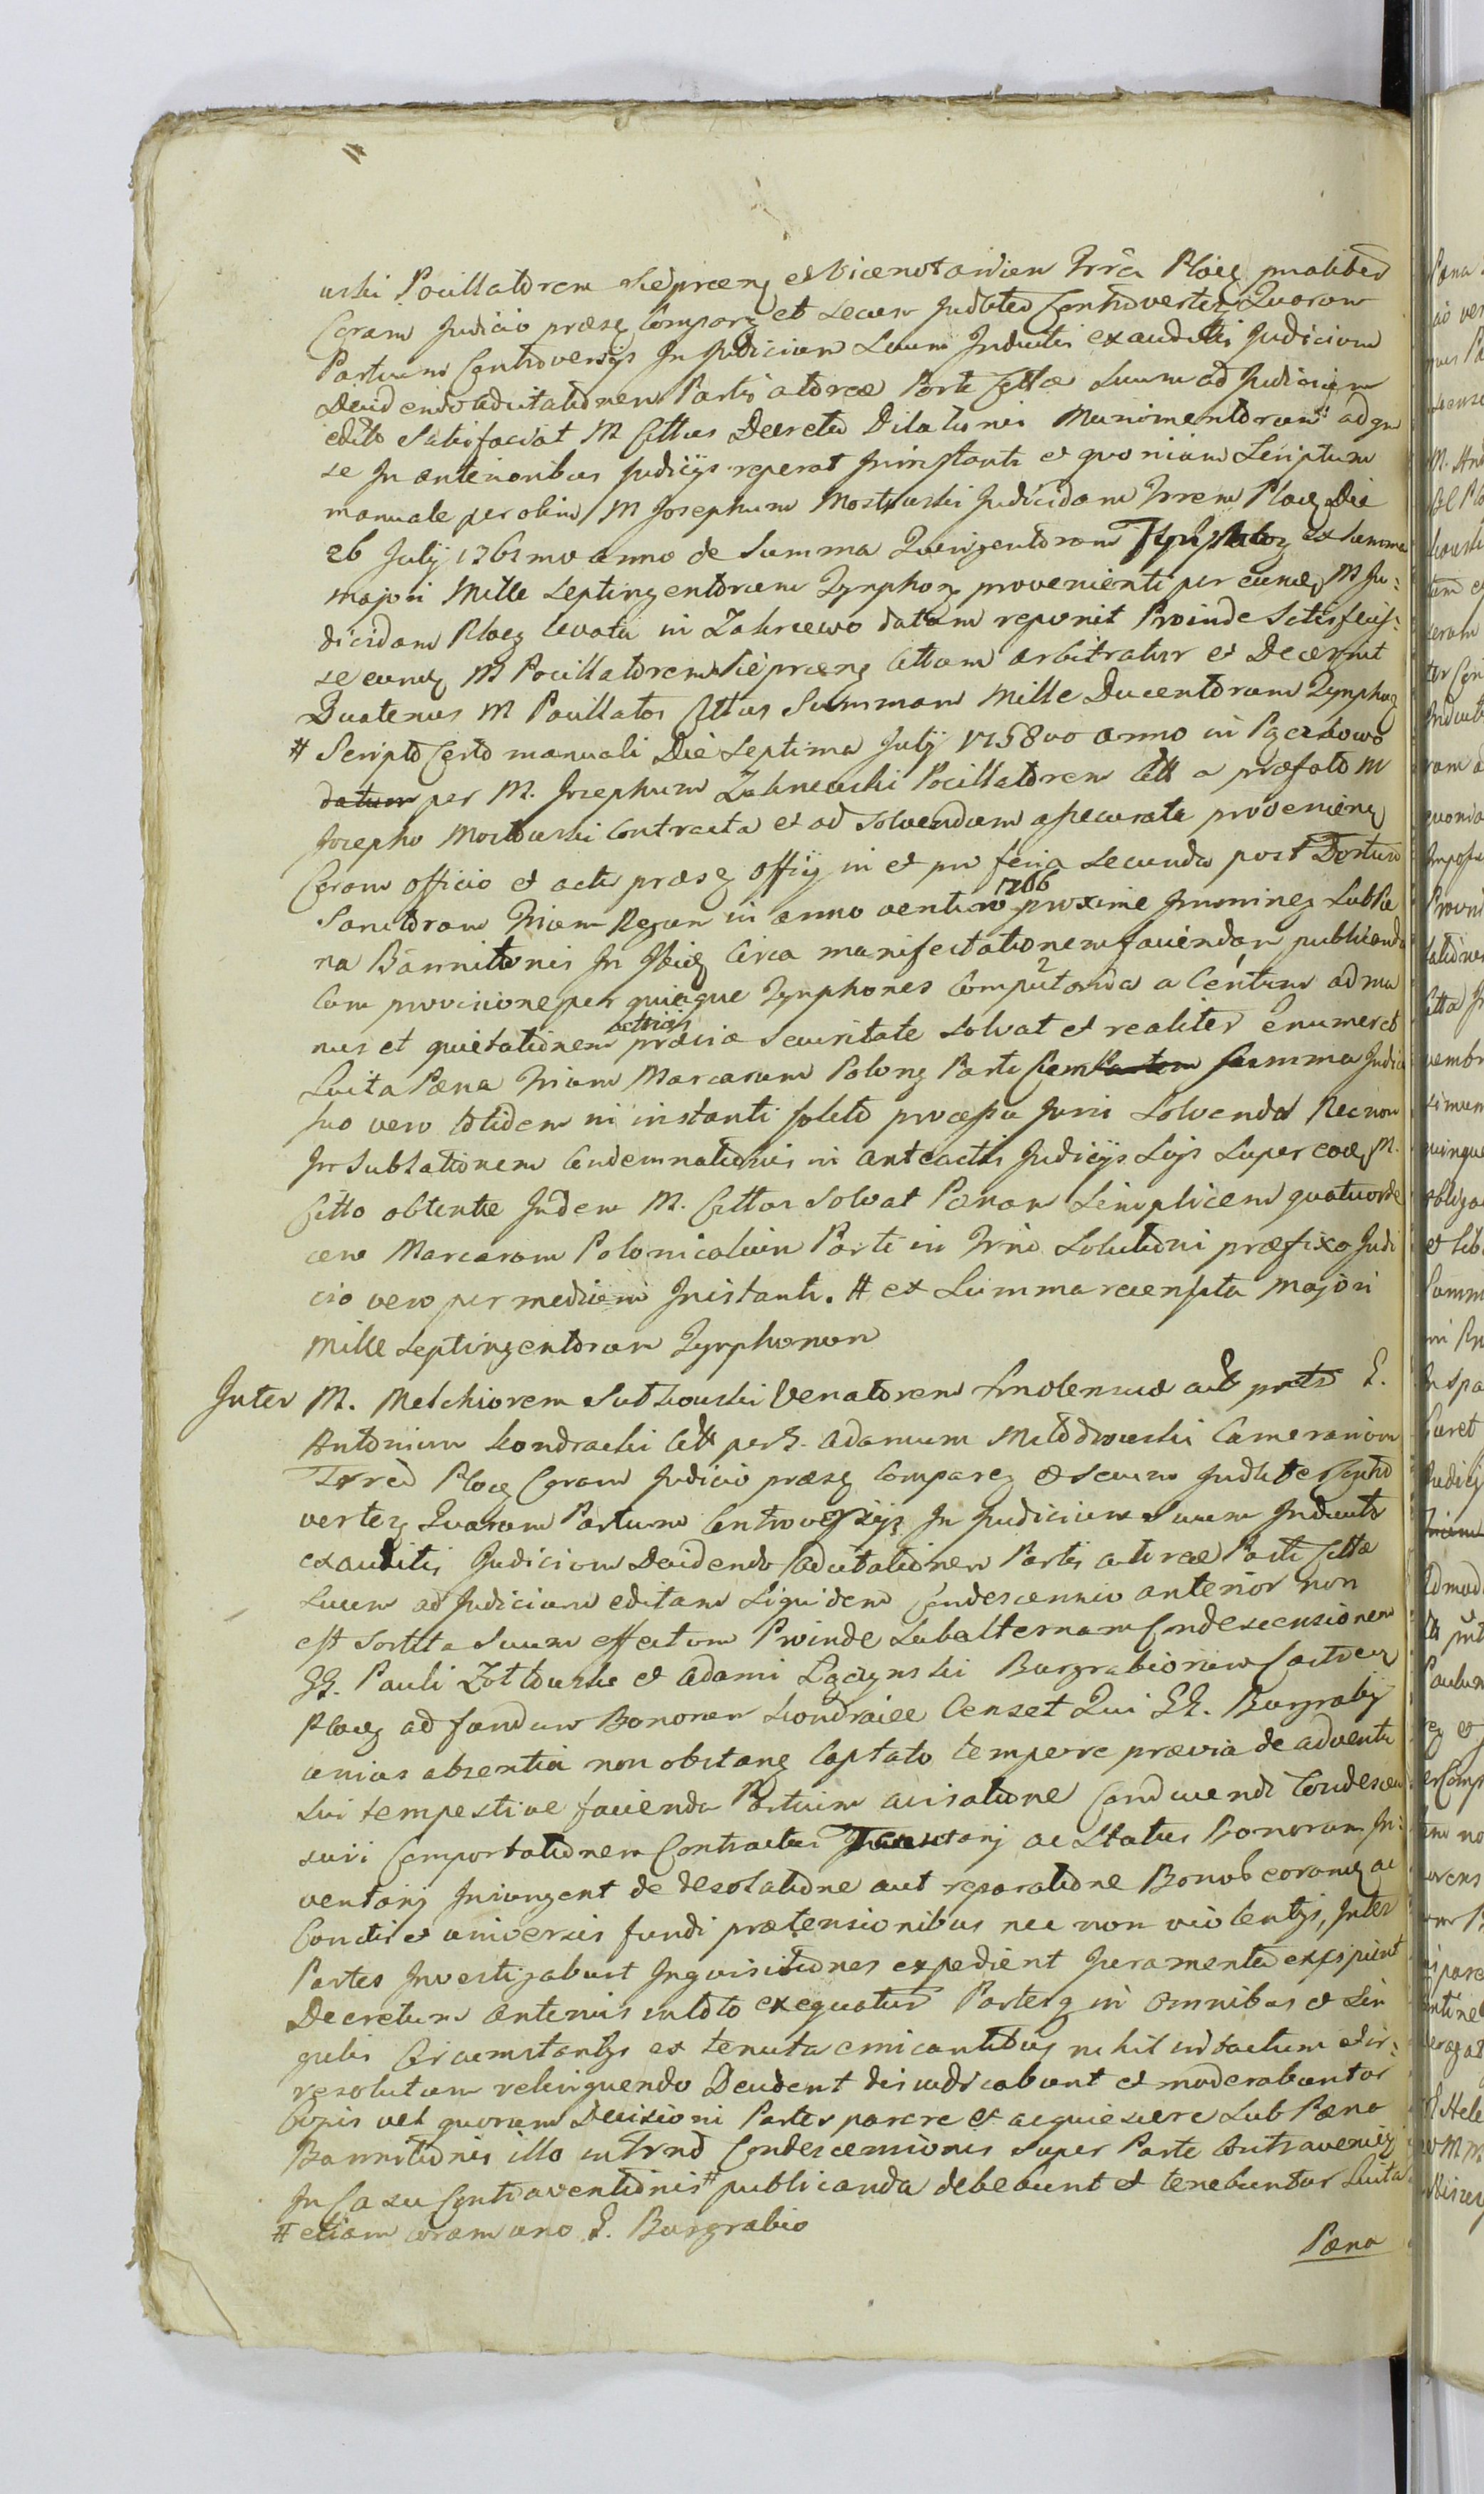 uski Pocillatorem Siepręng et Vicenotarium Trrae Ploceg pnaliter
Coram Judicio præseg Comparg et Secum Judlter Controverteg Quorum
Partium Controversijs In Judicium Suum Inductis exauditis Judicium
Decidendo Adcitationem Partis actoreæ Parti Cittæ Suum ad Judicium
edito Satisfaciat M Cittus Decreto Dilationis Munimentorum ad
se In anterioribus Judicijs reperat Ininstanti et quoniam Scriptum
manuale per olim M Josephum Mostowski Judicidam Trrem Ploceg Die
26 Julij 1761mo anno de Summa Quingentorum ex Summa
majori Mille Septingentorum Tynphong provenienti per eundg M Ju:
dicidam Ploceg levata in Zakrzewo datum reponit Proinde Satisfecis:
se eundg M Pocillatorem Siepræng Cittum arbitratur et Decernit
Quatenus M Pocillator Cittus Summam Mille Ducentorum Tynphong
# Scripto Certo manuali Die Septima Julij 1758vo anno in
datum per M. Josephum Zakrzewski Pocillatorem Citt a præfato M
Josepho Mostowski Contracta et ad Solvendum assecurata provenieng
Coram officio et actis præseg officij in et pro feria Secunda post Festum
Sanctorum Trium Regum in anno venturo 1766 proxime Immineg Sub Pæ
na Bannitionis In Circa manifestationem faciendam publicanda
Cum provisione per quinque Tynphones Computanda a Centum ad ma
nus et quietationem actricis prævia Securitate Solvat et realiter enumeret
Luita Pæna Trium Marcarum Polong Parti Summa Judi
cio vero totidem in instanti soluto processu Juris Solvenda Necnon
In Sublationem Condemnationis in anteactis Judicijs Sijs Super eodg M.
Citto obtentæ Judem M. Cittus Solvat Pænam Simplicem quatuorde
cem Marcarum Polonicalium Parti in Trno Solutioni præfixo Judi
cio vero per medium Inistanti. # ex Summa recensita Majori
Mille Septingentorum Tynphonum
Inter M. Melchiorem Sutkowski Venatorem Smolensem act G.
Antonium Kondracki Citt per G. Adamum Młodzowski Camerarium
Trræ Ploceg Coram Judicio præseg Compareg et Secum Judlter Contro
verteg Quorum Partium Controversijs In Judicium Suum Inductis
exauditis Judicium Decidendo Adcitationem Partis actoreæ Parti Cittæ
Suum ad Judicium editam Siquidem Condescensio anterior non
est Sortita Suum effectum Proinde Subalternam Condescensionem
GG. Pauli Zołtowski et Adami Łączynski Burgrabiorum Castreng
Ploceg ad fundum Bonorum Kondraiec Censet Qui GG. Burgrabij
unius absentia non obstang Captato tempore prævia de adventu
Sui tempestive facienda Partium avisatione Conducendi Condescen
suri Comportationem Contractus ac Status Bonorum In:
ventarij Iniungent de desolatione aut reparatione Bonor eorundg ac
Cunctis et universis fundi prætensionibus nec non violentijs, Inter
Partes Investigabunt Inquisitiones expedient Juramenta excipient
Decretum Antemissum in toto exequatur Partesg in Omnibus et Sin
gulis Circumstantijs ex tenuta emicantibus nihil intactum et ir:
resolutum relinquendo Decident diiudicabunt et moderabuntur
Cujus vel quorum Decisioni Partes parere et acquiescere Sub Pæna
Bannitionis illo in Trno Condescensionis Super Parte Contravenieg
In Casu Contraventionis # publicanda debebunt et tenebuntur Luita
# etiam coram uno G. Burgrabio
Pæna